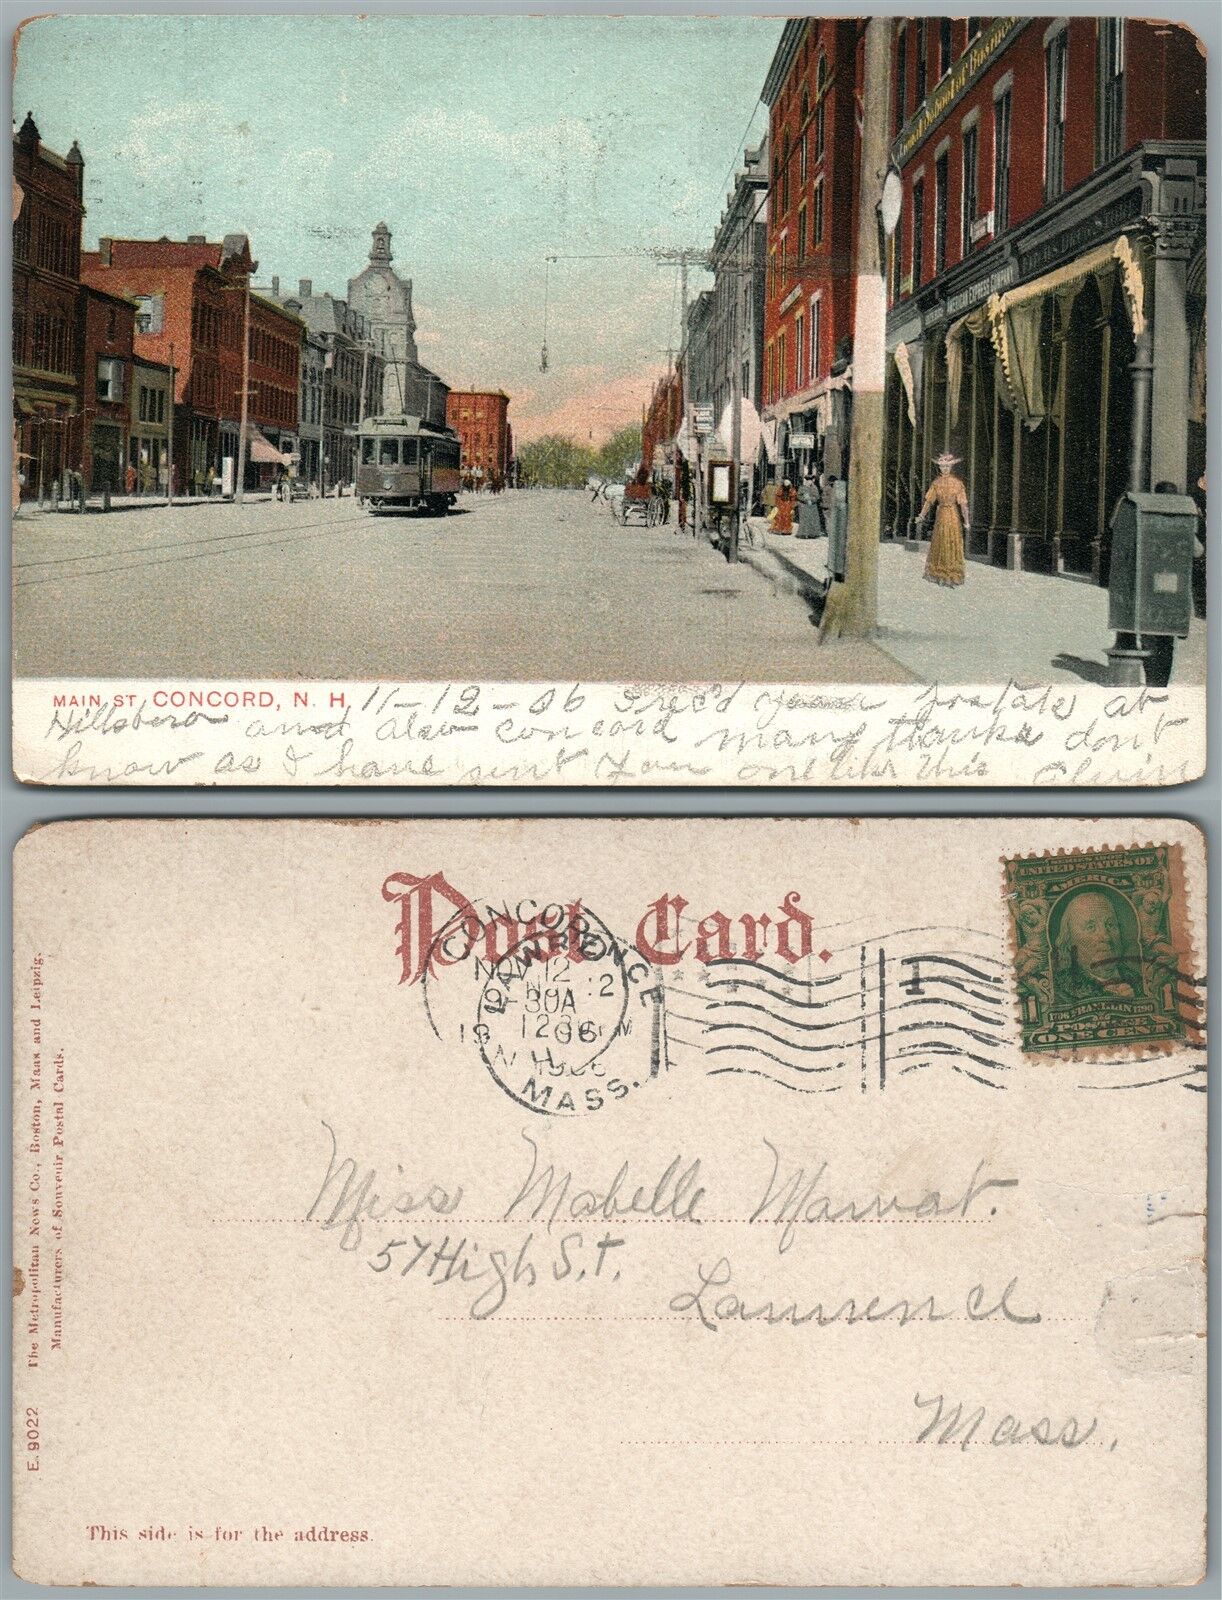 School of Business
EXPRESS COMPANY
MAIN ST, CONCORD, N. H.
11-12-06 I rec'd your postals at
Hillsboro and also concord many thanks dont
know as I have sent you one like this Alvin
Post Card.
CONCORD
NOV 12
930A
1906
N.H.
LAWRENCE
MASS.
1
SERIES 1902
UNITED STATES OF
AMERICA
1706 FRANKLIN 1790
1 1
POSTAGE
ONE CENT
Miss Mabelle
57 High S.T.
Lawrence
Mass.
The Metropolitan News Co., Boston, Mass and Leipzig.
Manufacturers of Souvenir Postal Cards.
E. 9022
This side is for the address.